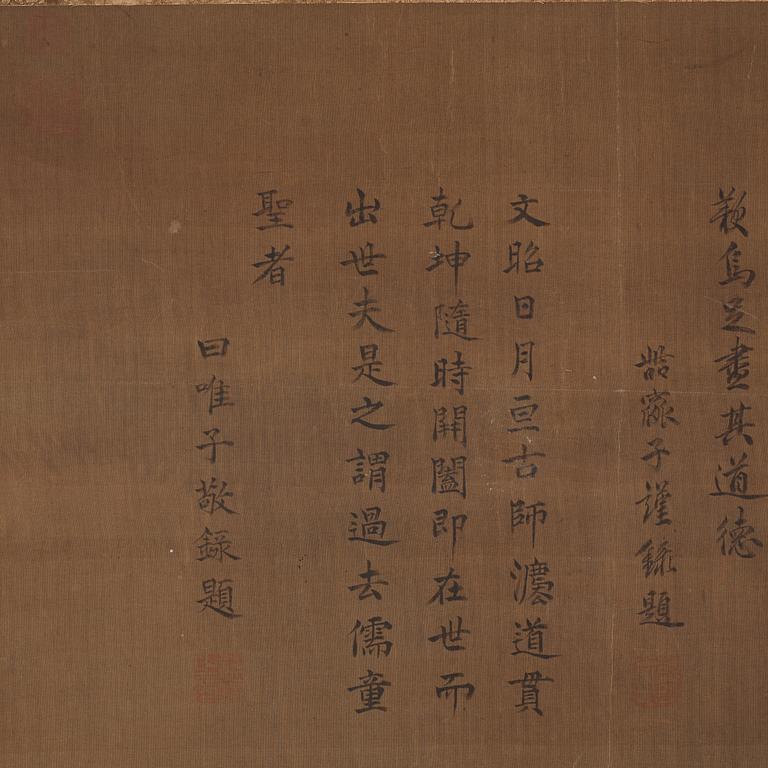 歎烏足盡其道德
子謹錄題
文昭日月亘古師灋道貫
乾坤隨時開闔即在世而
出世夫是之謂過去儒童
聖者
曰唯子敬錄題